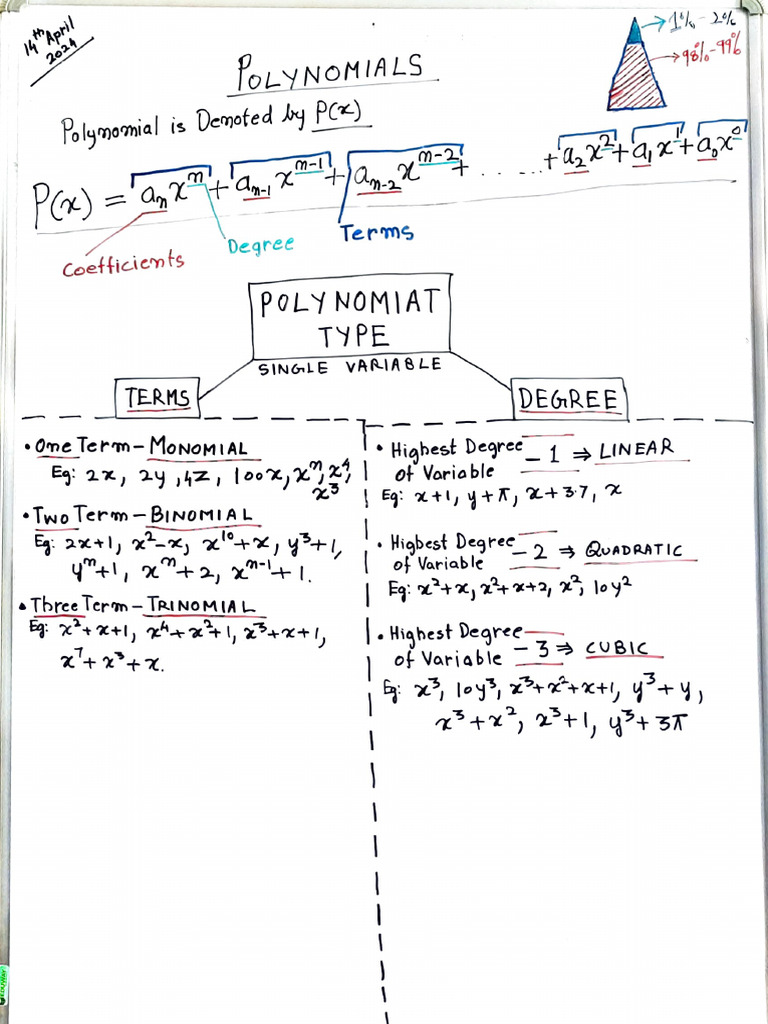 14th April
2024
1% - 2%
98% - 99%
POLYNOMIALS
Polynomial is Denoted by P(x)
P(x) = aₙxⁿ + aₙ₋₁xⁿ⁻¹ + aₙ₋₂xⁿ⁻² + ...... + a₂x² + a₁x¹ + a₀x⁰
Coefficients
Degree
Terms
POLYNOMIAT
TYPE
SINGLE VARIABLE
TERMS
• One Term - MONOMIAL
Eg: 2x, 2y, 4z, 100x, xⁿ, x⁴,
x³
• Two Term - BINOMIAL
Eg: 2x+1, x²-x, x¹⁰+x, y³+1,
yⁿ+1, xⁿ+2, xⁿ⁻¹+1.
• Three Term - TRINOMIAL
Eg: x²+x+1, x⁴+x²+1, x³+x+1,
x⁷+x³+x.
DEGREE
• Highest Degree
of Variable - 1 ⇒ LINEAR
Eg: x+1, y+π, x+3.7, x
• Highest Degree
of Variable - 2 ⇒ QUADRATIC
Eg: x²+x, x²+x+2, x², 10y²
• Highest Degree
of Variable - 3 ⇒ CUBIC
Eg: x³, 10y³, x³+x²+x+1, y³+y,
x³+x², x³+1, y³+3π